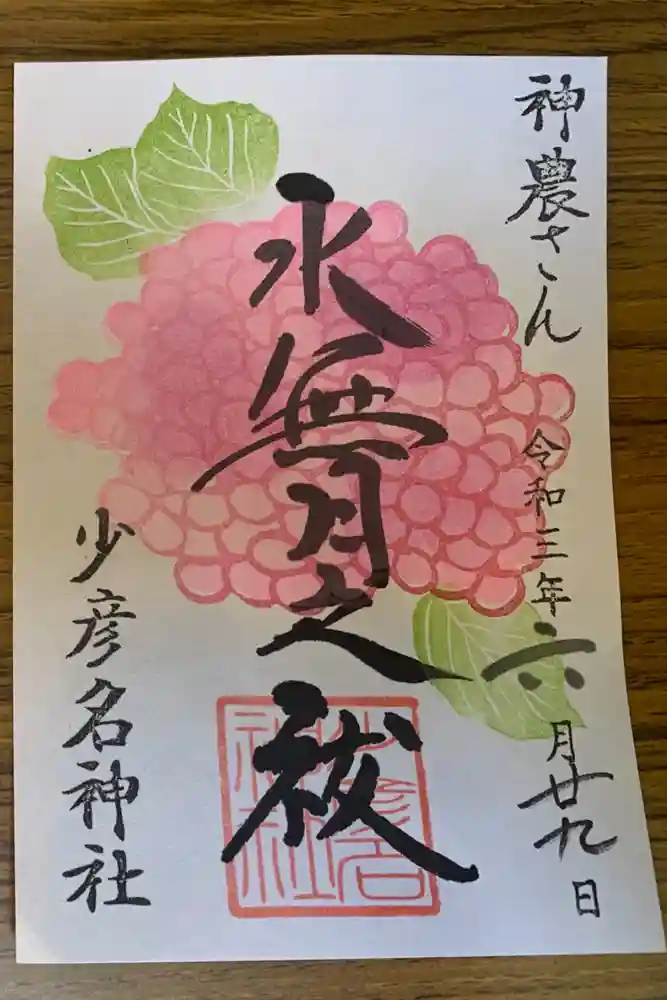 神農さん
令和三年六月廿九日
水無月之祓
少彦名神社
少彦名
神社